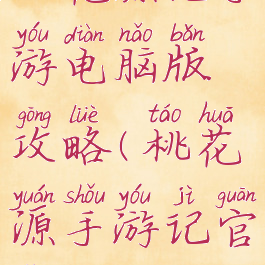 yóu diàn nǎo bǎn
游电脑版
gōng lüè táo huā
攻略(桃花
yuán shǒu yóu jì guān
源手游记官